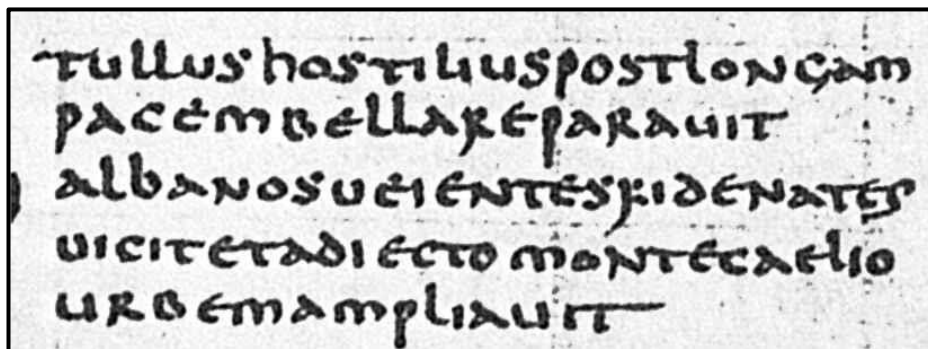 tullus hostilius post longam
pacem bellare paravit
albanos veientes fidenates
vicit et adiecto monte caelio
urbem ampliavit